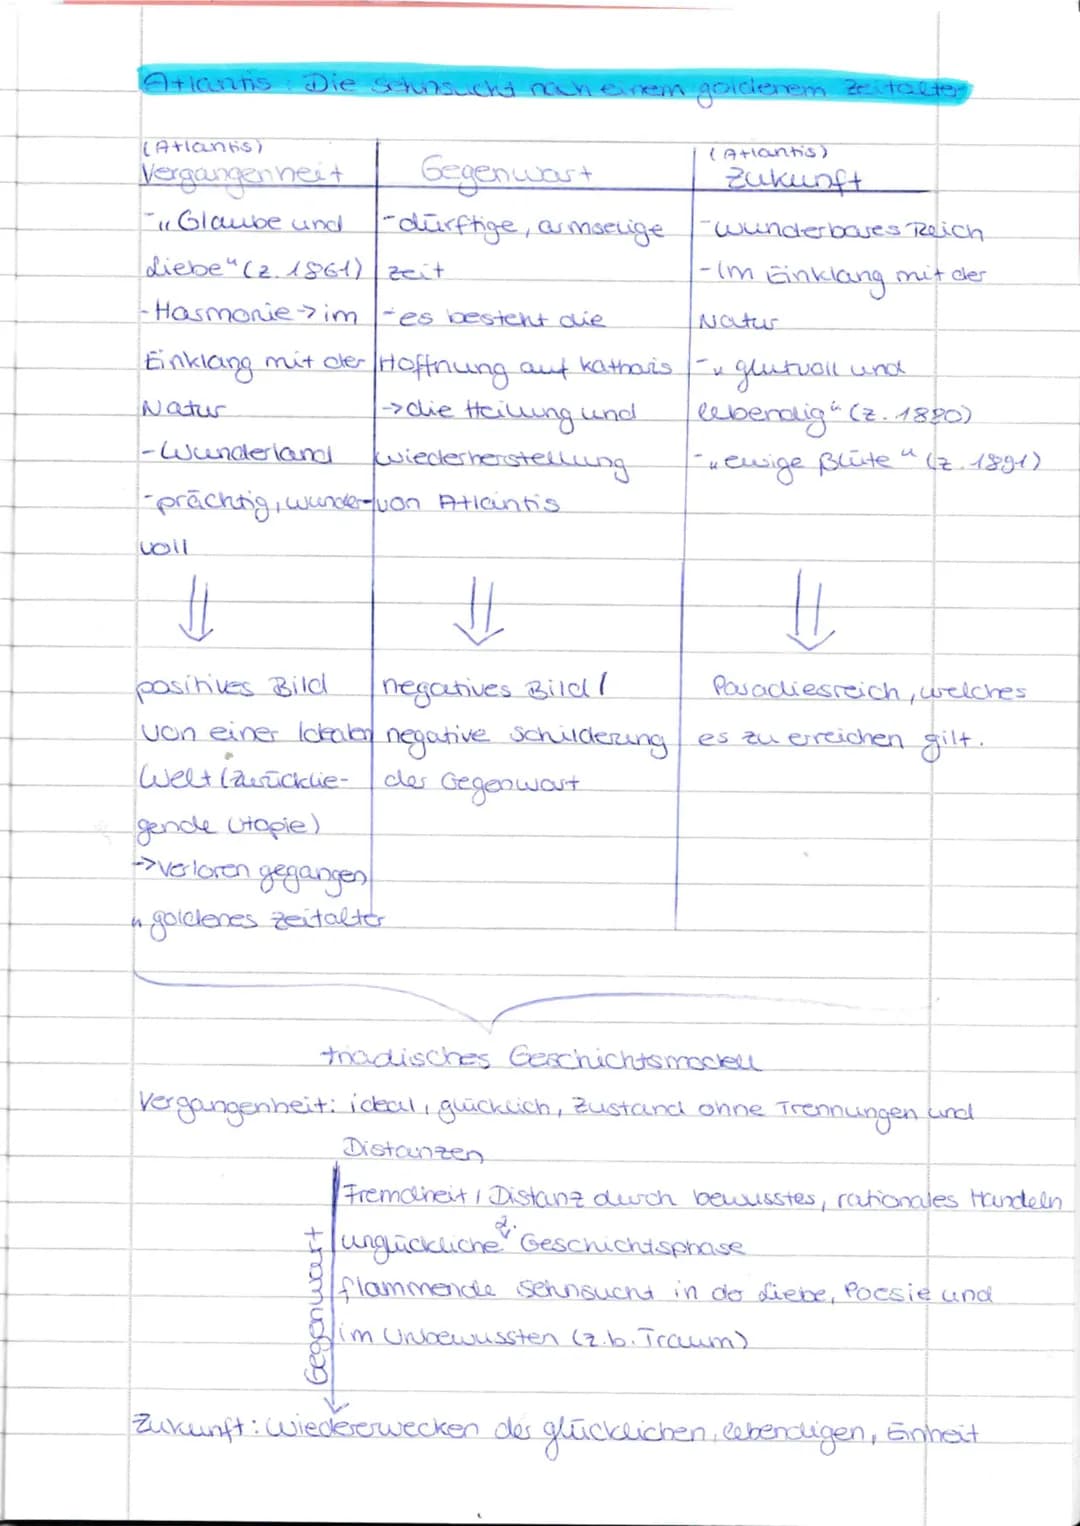 Atlantis: Die Sehnsucht nach einem goldenem Zeitalter
(Atlantis)
Vergangenheit
-„Glaube und
Liebe" (Z. 1861)
-Harmonie → im
Einklang mit der
Natur
-Wunderland
-prächtig, wunder-
voll
⇓
positives Bild
von einer Idealen
Welt (zurücklie-
gende Utopie)
→verloren gegangen
" goldenes Zeitalter
Gegenwart
-dürftige, armselige
Zeit
-es besteht die
Hoffnung auf Kathars
→die Heilung und
Wiederherstellung
von Atlantis
⇓
negatives Bild /
negative Schilderung
der Gegenwart
(Atlantis)
Zukunft
-wunderbares Reich
-Im Einklang mit der
Natur
-„glutvoll und
lebendig" (Z. 1880)
-„ewige Blüte" (Z. 1891)
⇓
Paradiesreich, welches
es zu erreichen gilt.
triadisches Geschichtsmodell
Vergangenheit: ideal, glücklich, Zustand ohne Trennungen und
Distanzen
Gegenwart
Fremdheit / Distanz durch bewusstes, rationales Handeln
unglückliche 2. Geschichtsphase
flammende Sehnsucht in der Liebe, Poesie und
im Unbewussten (z.b. Traum)
Zukunft: Wiedererwecken der glücklichen, lebendigen, Einheit